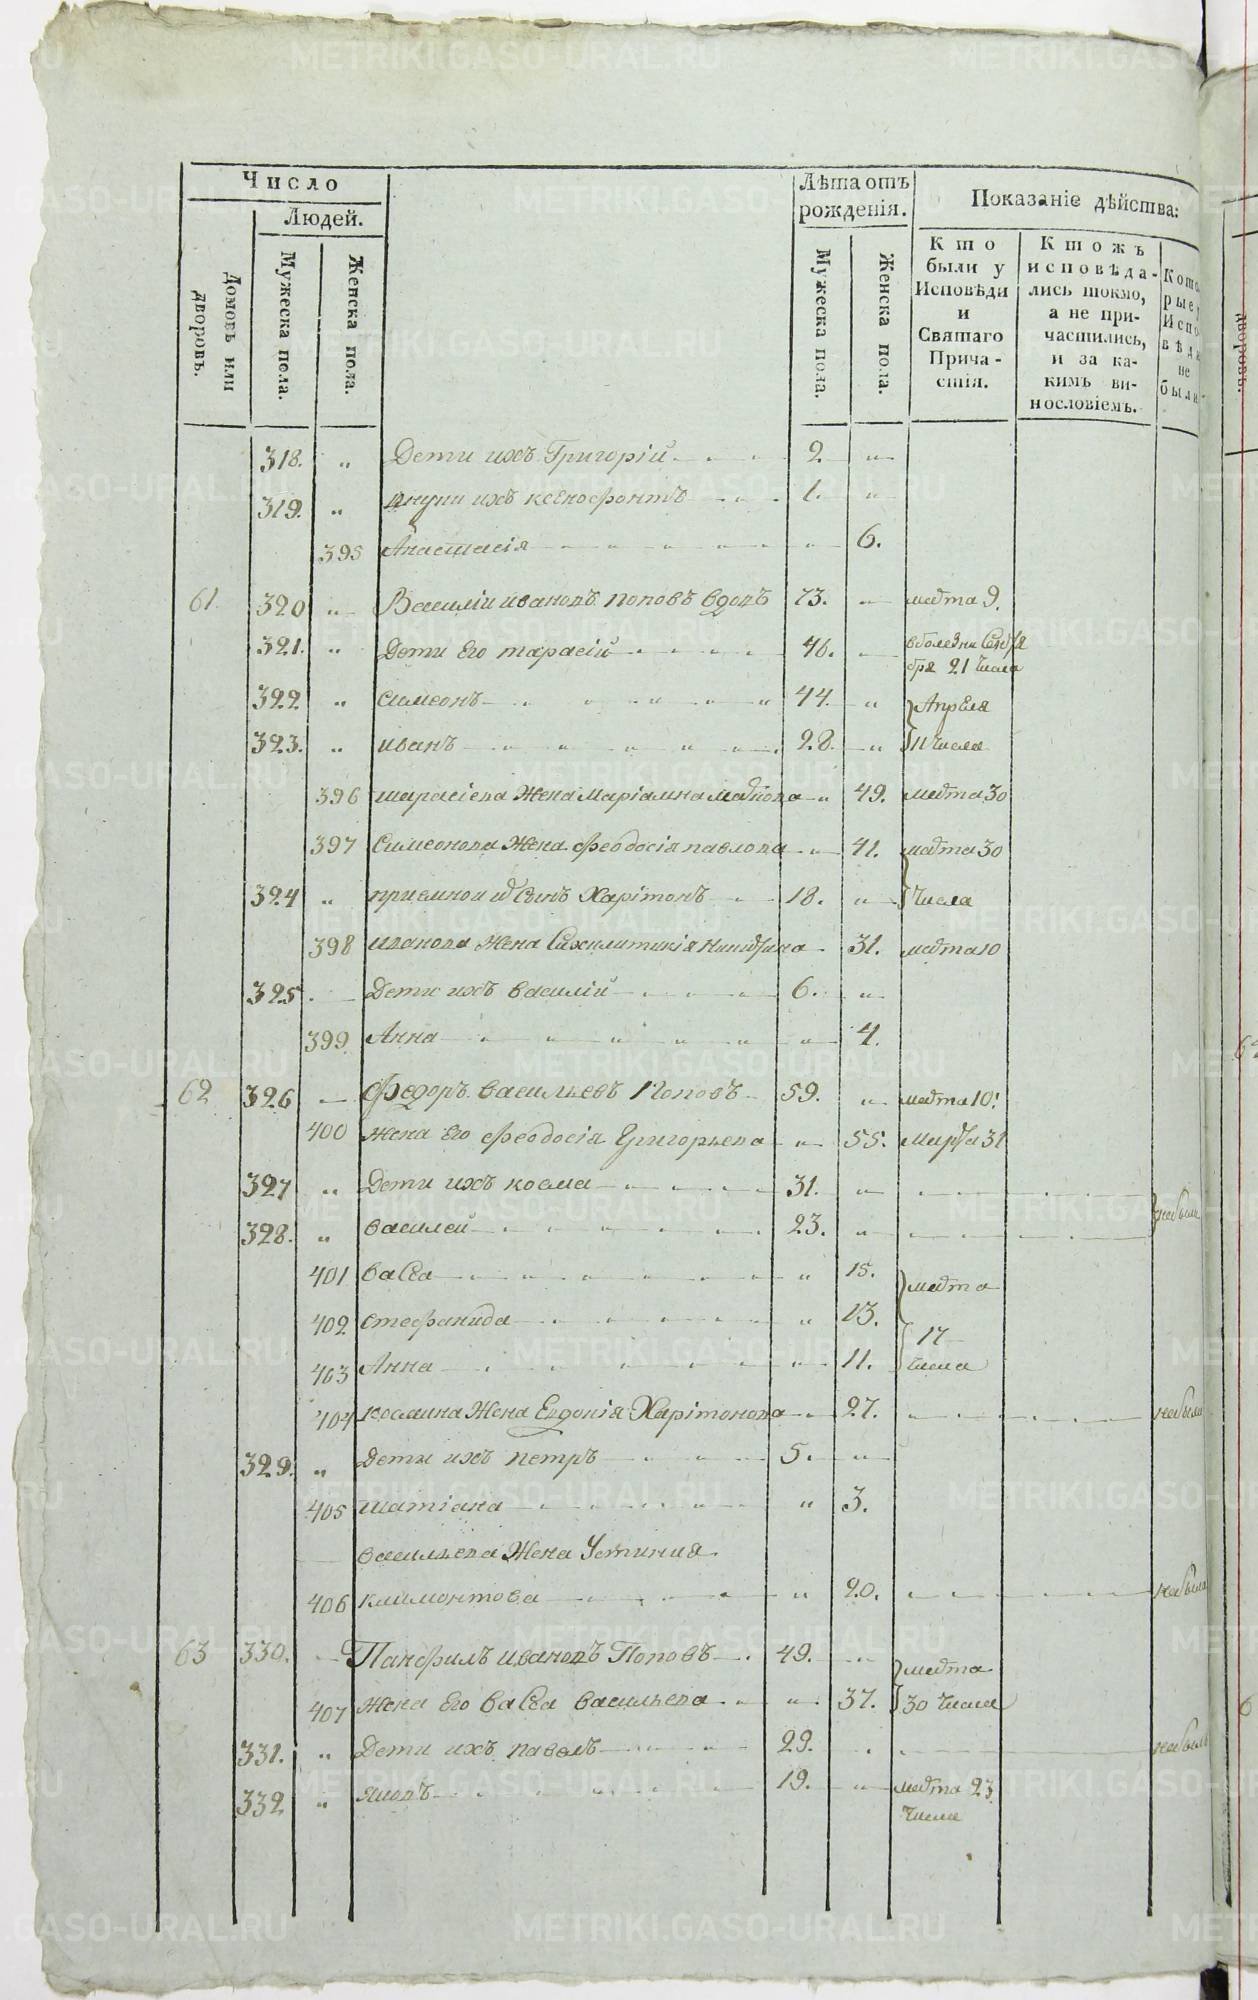 Число
Людей.
Домовъ или дворовъ.
Мужеска пола.
Женска пола.
Лѣта отъ рожденія.
Мужеска пола.
Женска пола.
Показаніе дѣйства:
Кто были у Исповѣди и Святаго Прича-стія.
Ктожъ исповѣда-лись токмо, а не при-частились, и за ка-кимъ ви-нословіемъ.
318. „ Дети ихъ Григорій 2. „
319. „ внуки ихъ ксенофонтъ 1. „
395 Анастасія „ 6.
61. 320 „ Василіи ивановъ поповъ вдовъ 73. „ марта 9.
321. „ Дети Его тарасій 46. „
322 „ симеонъ 44. „ Апреля
323. „ иванъ 28. „ 11 числа
396 тарасіева Жена Маріамна „ 49. марта 30
397 Симеонова Жена феодосія павлова „ 41. марта 30
324 „ приемной сынъ Харітонъ 18. „ числа
398 иванова Жена 31. марта 10
325. Дети ихъ василій 6. „
399. Анна „ 4.
62 326 Федоръ васильевъ Поповъ 59. „ марта 10.
400 жена Его феодосія Григорьева „ 55. марта 31
327 „ Дети ихъ косма 31. „
328. „ василей 23. „ небыли
401 васса „ 15. марта
402 стефанида „ 13. 17
403 Анна „ 11. числа
404 космина Жена Евдокія Харітонова „ 27. небыла
329. „ дети ихъ петръ 5. „
405 татіана „ 3.
васильева Жена Устиниа
406 климонтова „ 20. небыла
63 330. Панфилъ ивановъ Поповъ 49. „ марта
407 Жена Его васса васильева „ 37. 30 числа
331. „ Дети ихъ павелъ 29. небылъ
332 „ яковъ 19. „ марта 23
числа
METRIKI.GASO-URAL.RU